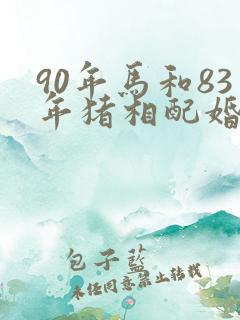 90年馬和83
年猪相配婚
包子藍
未任同意禁止转载